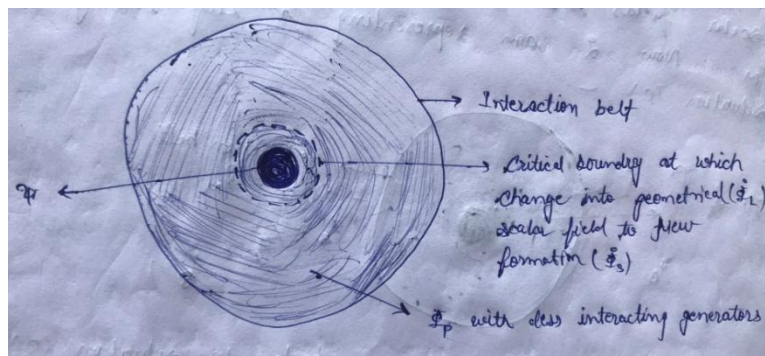 Interaction belt
Critical boundry at which
change into geometrical (Φ̊_L)
scalar field to New
formation (Φ̊_s)
Ψ
Φ_p with less interacting generators